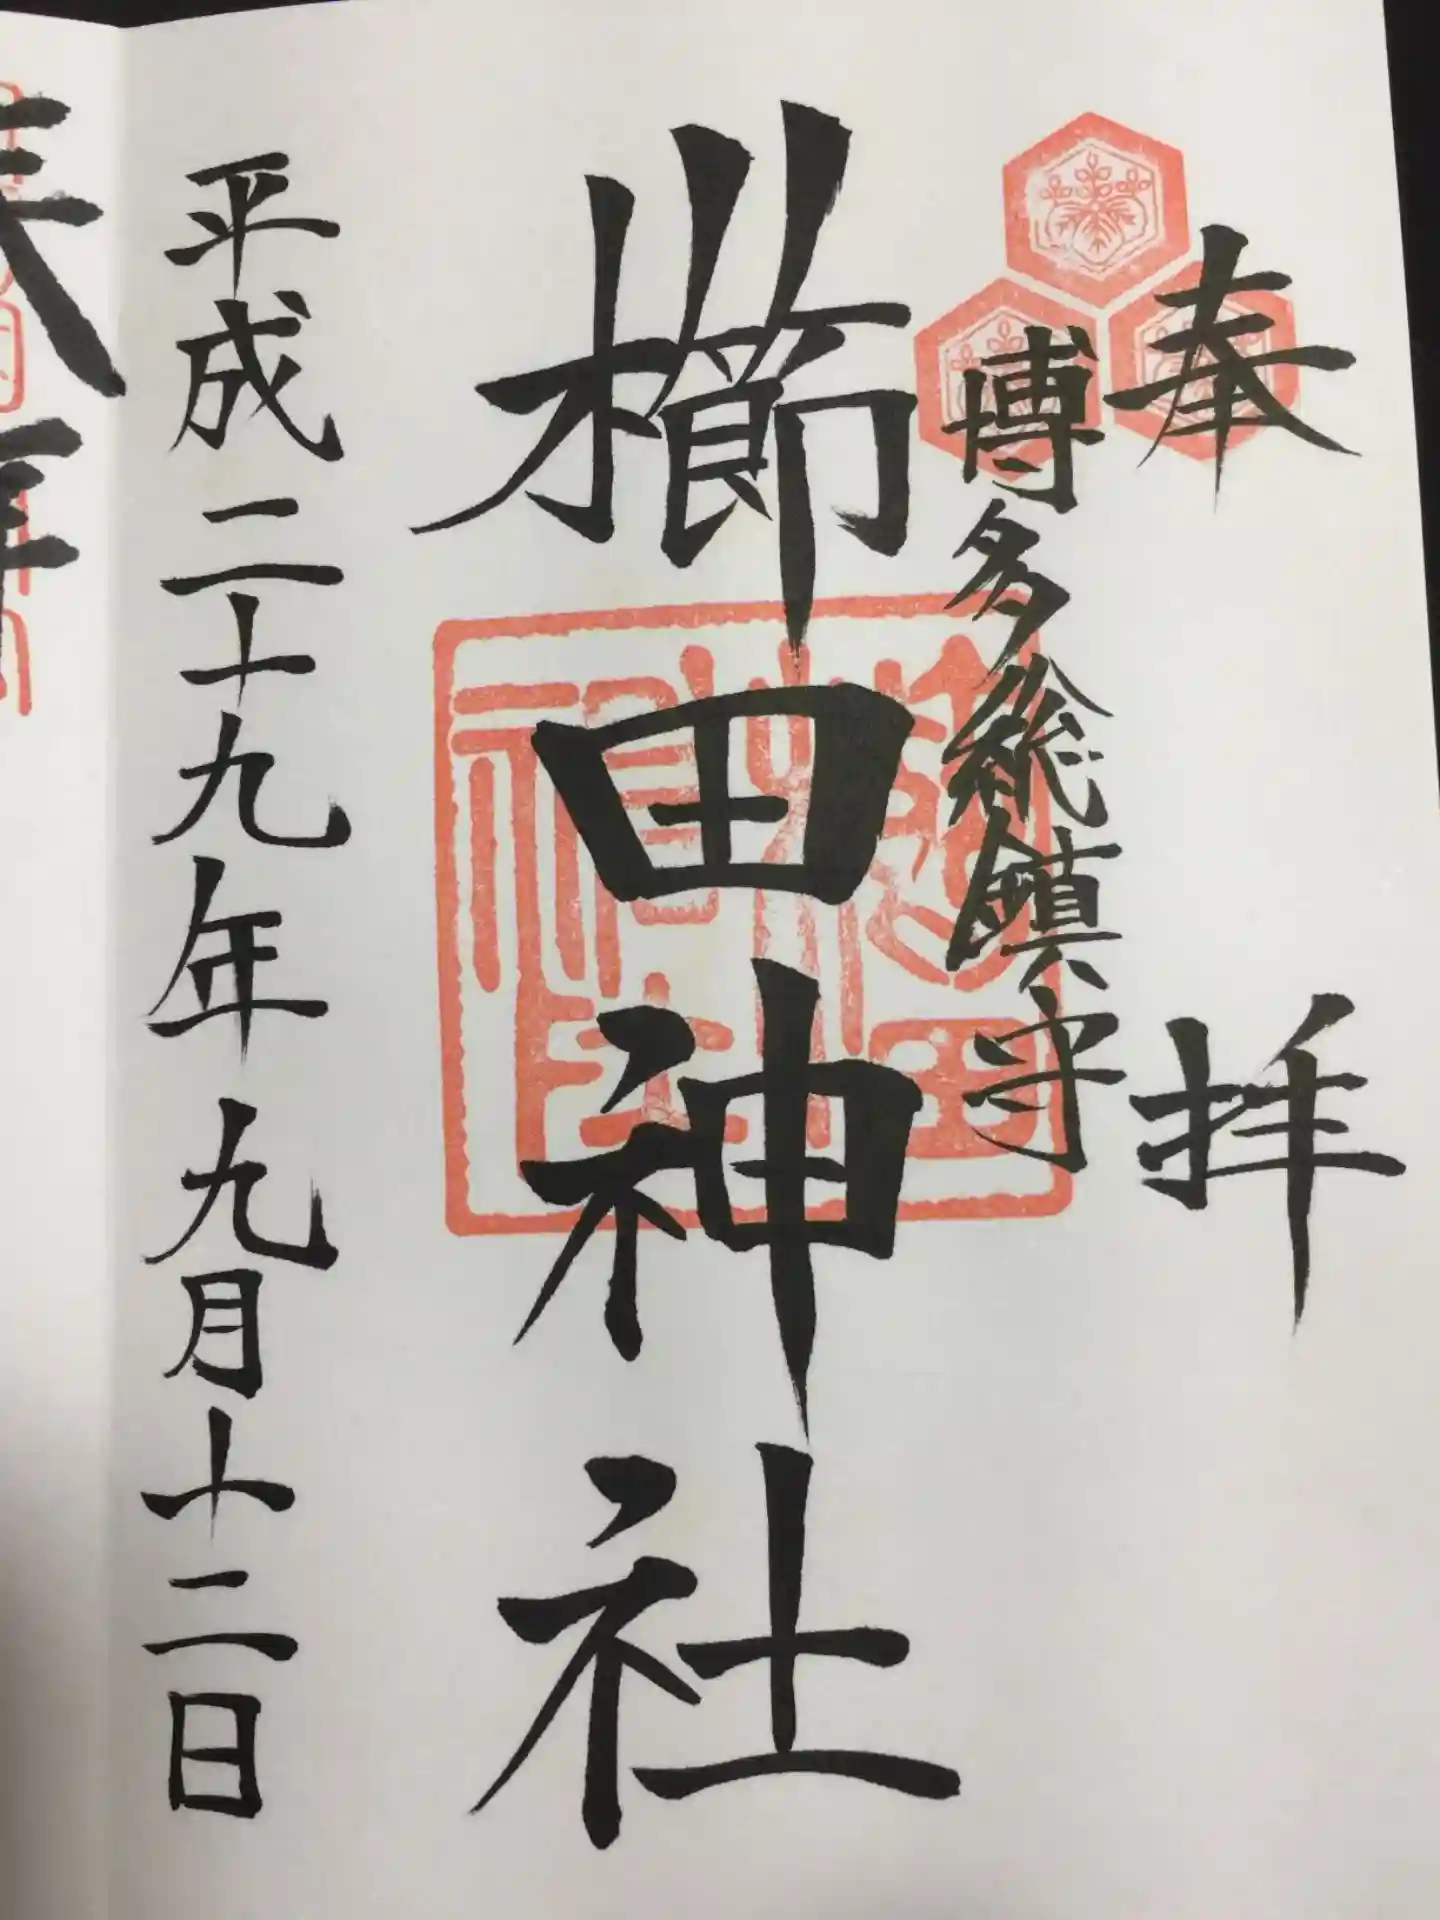 奉拝
博多総鎮守
櫛田神社
平成二十九年九月十二日